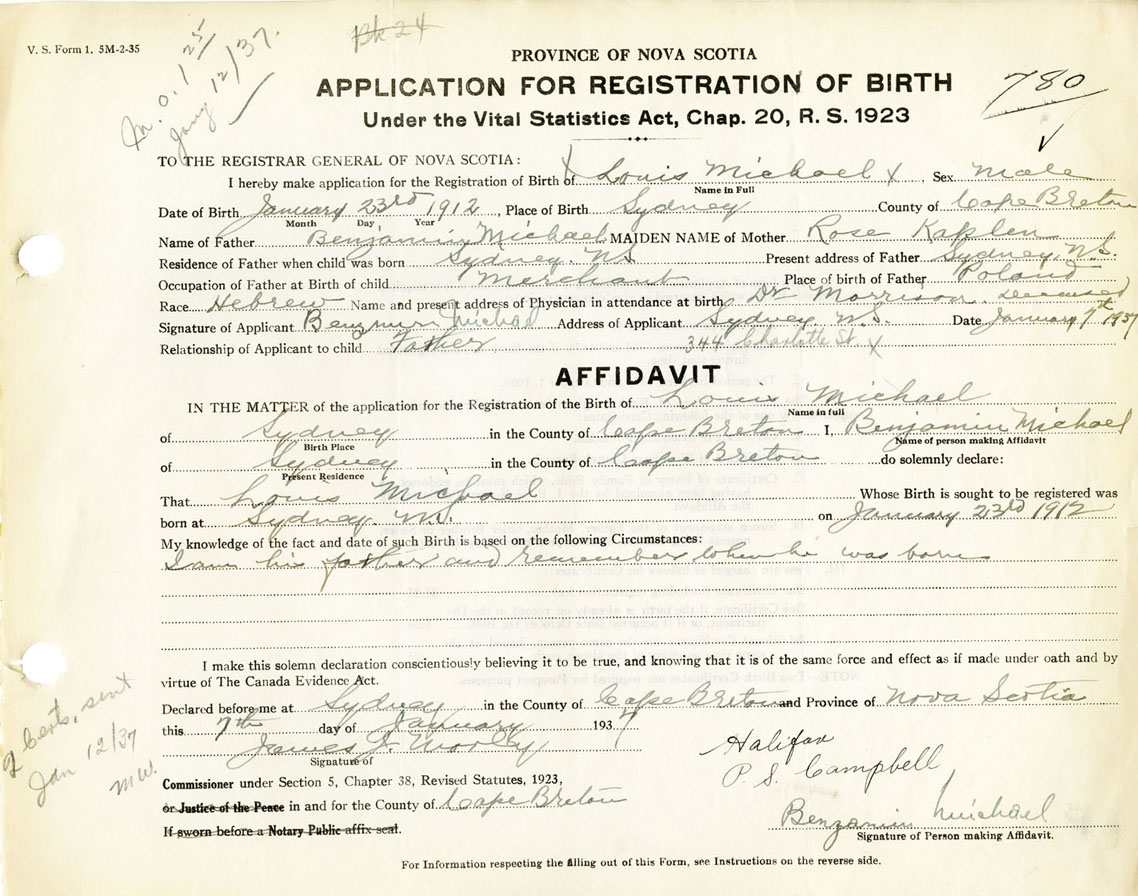 V. S. Form 1, 5M-2-35
M.O. 1 25/
Jany 12/37.
Bk 24
780
PROVINCE OF NOVA SCOTIA
APPLICATION FOR REGISTRATION OF BIRTH
Under the Vital Statistics Act, Chap. 20, R. S. 1923
TO THE REGISTRAR GENERAL OF NOVA SCOTIA:
I hereby make application for the Registration of Birth of X Louis Michael X, Sex Male
Name in Full
Date of Birth January 23rd 1912, Place of Birth Sydney County of Cape Breton
Month Day Year
Name of Father Benjamin Michael MAIDEN NAME of Mother Rose Kaplen
Residence of Father when child was born Sydney. N.S. Present address of Father Sydney, N.S.
Occupation of Father at Birth of child Merchant Place of birth of Father Poland
Race Hebrew Name and present address of Physician in attendance at birth Dr Morrison deceased
Signature of Applicant Benzamin Michael Address of Applicant Sydney N.S. Date January 7th 1937
Relationship of Applicant to child Father 344 Charlotte St. X
AFFIDAVIT
IN THE MATTER of the application for the Registration of the Birth of Louis Michael
Name in full
of Sydney in the County of Cape Breton I, Benjamin Michael
Birth Place Name of person making Affidavit
of Sydney in the County of Cape Breton do solemnly declare:
Present Residence
That Louis Michael Whose Birth is sought to be registered was
born at Sydney. N.S. on January 23rd 1912
My knowledge of the fact and date of such Birth is based on the following Circumstances:
I am his father and remember when he was born
I make this solemn declaration conscientiously believing it to be true, and knowing that it is of the same force and effect as if made under oath and by
virtue of The Canada Evidence Act.
Declared before me at Sydney in the County of Cape Breton and Province of Nova Scotia
this 7th day of January 1937
James J.
Signature of
Halifax
P. S. Campbell
2 Certs. sent
Jan 12/37
M.W.
Commissioner under Section 5, Chapter 38, Revised Statutes, 1923,
or Justice of the Peace in and for the County of Cape Breton
If sworn before a Notary Public affix seal.
Benzamin Michael
Signature of Person making Affidavit.
For Information respecting the filling out of this Form, see Instructions on the reverse side.